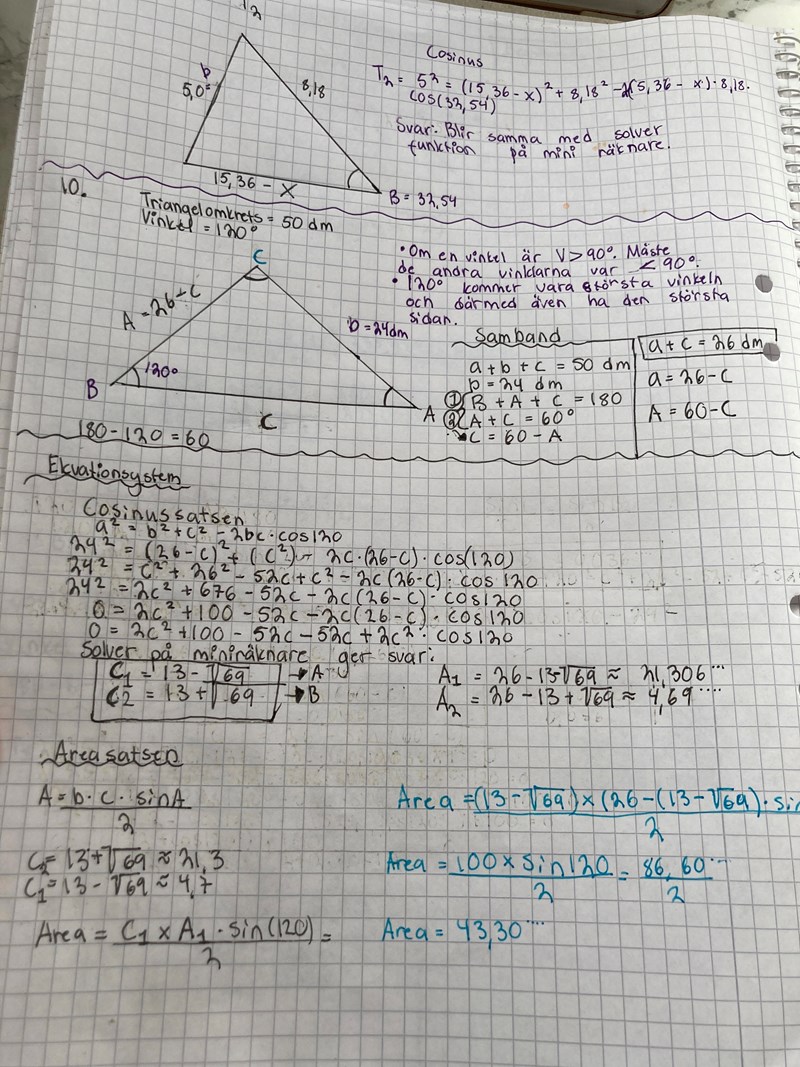 b
5,0°
8,18
15,36 - X
B = 32,54
Cosinus
T₂ = 5² = (15,36 - x)² + 8,18² - 2(5,36 - x) · 8,18 ·
cos(32,54)
Svar: Blir samma med solver
funktion på mini räknare.
10.
Triangelomkrets = 50 dm
Vinkel = 120°
C
A = 26 - C
b = 24 dm
120°
B
A
C
180 - 120 = 60
• Om en vinkel är V > 90°. Måste
de andra vinklarna var < 90°.
• 120° kommer vara största vinkeln
och därmed även ha den största
sidan.
Samband
a + b + c = 50 dm
b = 24 dm
① B + A + C = 180
② A + C = 60°
C = 60 - A
a + c = 26 dm
a = 26 - C
A = 60 - C
Ekvationsystem
Cosinussatsen
a² = b² + c² - 2bc · cos120
24² = (26 - c)² + (c²) - 2c · (26 - c) · cos(120)
24² = c² + 26² - 52c + c² - 2c(26 - c) · cos 120
24² = 2c² + 676 - 52c - 2c(26 - c) · cos120
0 = 2c² + 100 - 52c - 2c(26 - c) · cos120
0 = 2c² + 100 - 52c - 52c + 2c² · cos120
Solver på miniräknare ger svar:
C₁ = 13 - √69 → A
C2 = 13 + √69 → B
A₁ = 26 - 13 - √69 ≈ 21,306...
A₂ = 26 - 13 + √69 ≈ 4,69....
Areasatsen
A = b · c · sinA / 2
C₂ = 13 + √69 ≈ 21,3
C₁ = 13 - √69 ≈ 4,7
Area = C₁ × A₁ · sin(120) / 2 =
Area = (13 - √69) × (26 - (13 - √69) · sin / 2
Area = 100 × sin120 / 2 = 86,60... / 2
Area = 43,30....